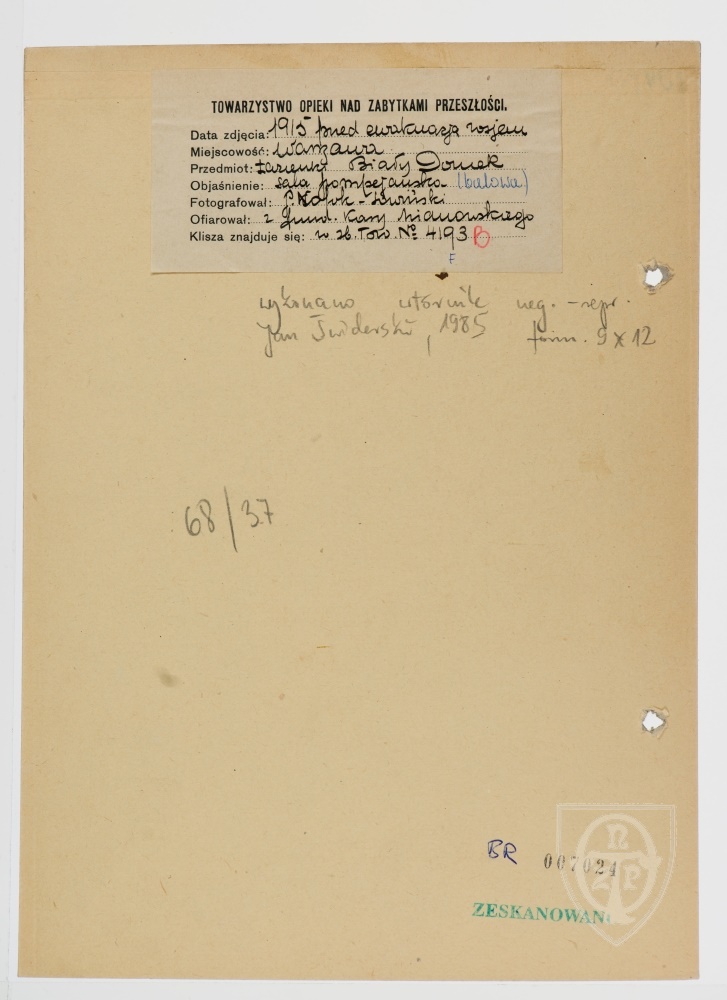 TOWARZYSTWO OPIEKI NAD ZABYTKAMI PRZESZŁOŚCI.
Data zdjęcia: 1915 przed ewakuacją rosjan
Miejscowość: Warszawa
Przedmiot: Łazienki Biały Domek
Objaśnienie: sala pompejańska (balowa)
Fotografował: P.
Ofiarował: z fund. Kasy Mianowskiego
Klisza znajduje się: w zb. Tow. № 4193 B
F
wykonano wtórnik neg. - repr.
Jan Świderski, 1985 form. 9 x 12
68/37
BR 007024
nZPT
ZESKANOWANO